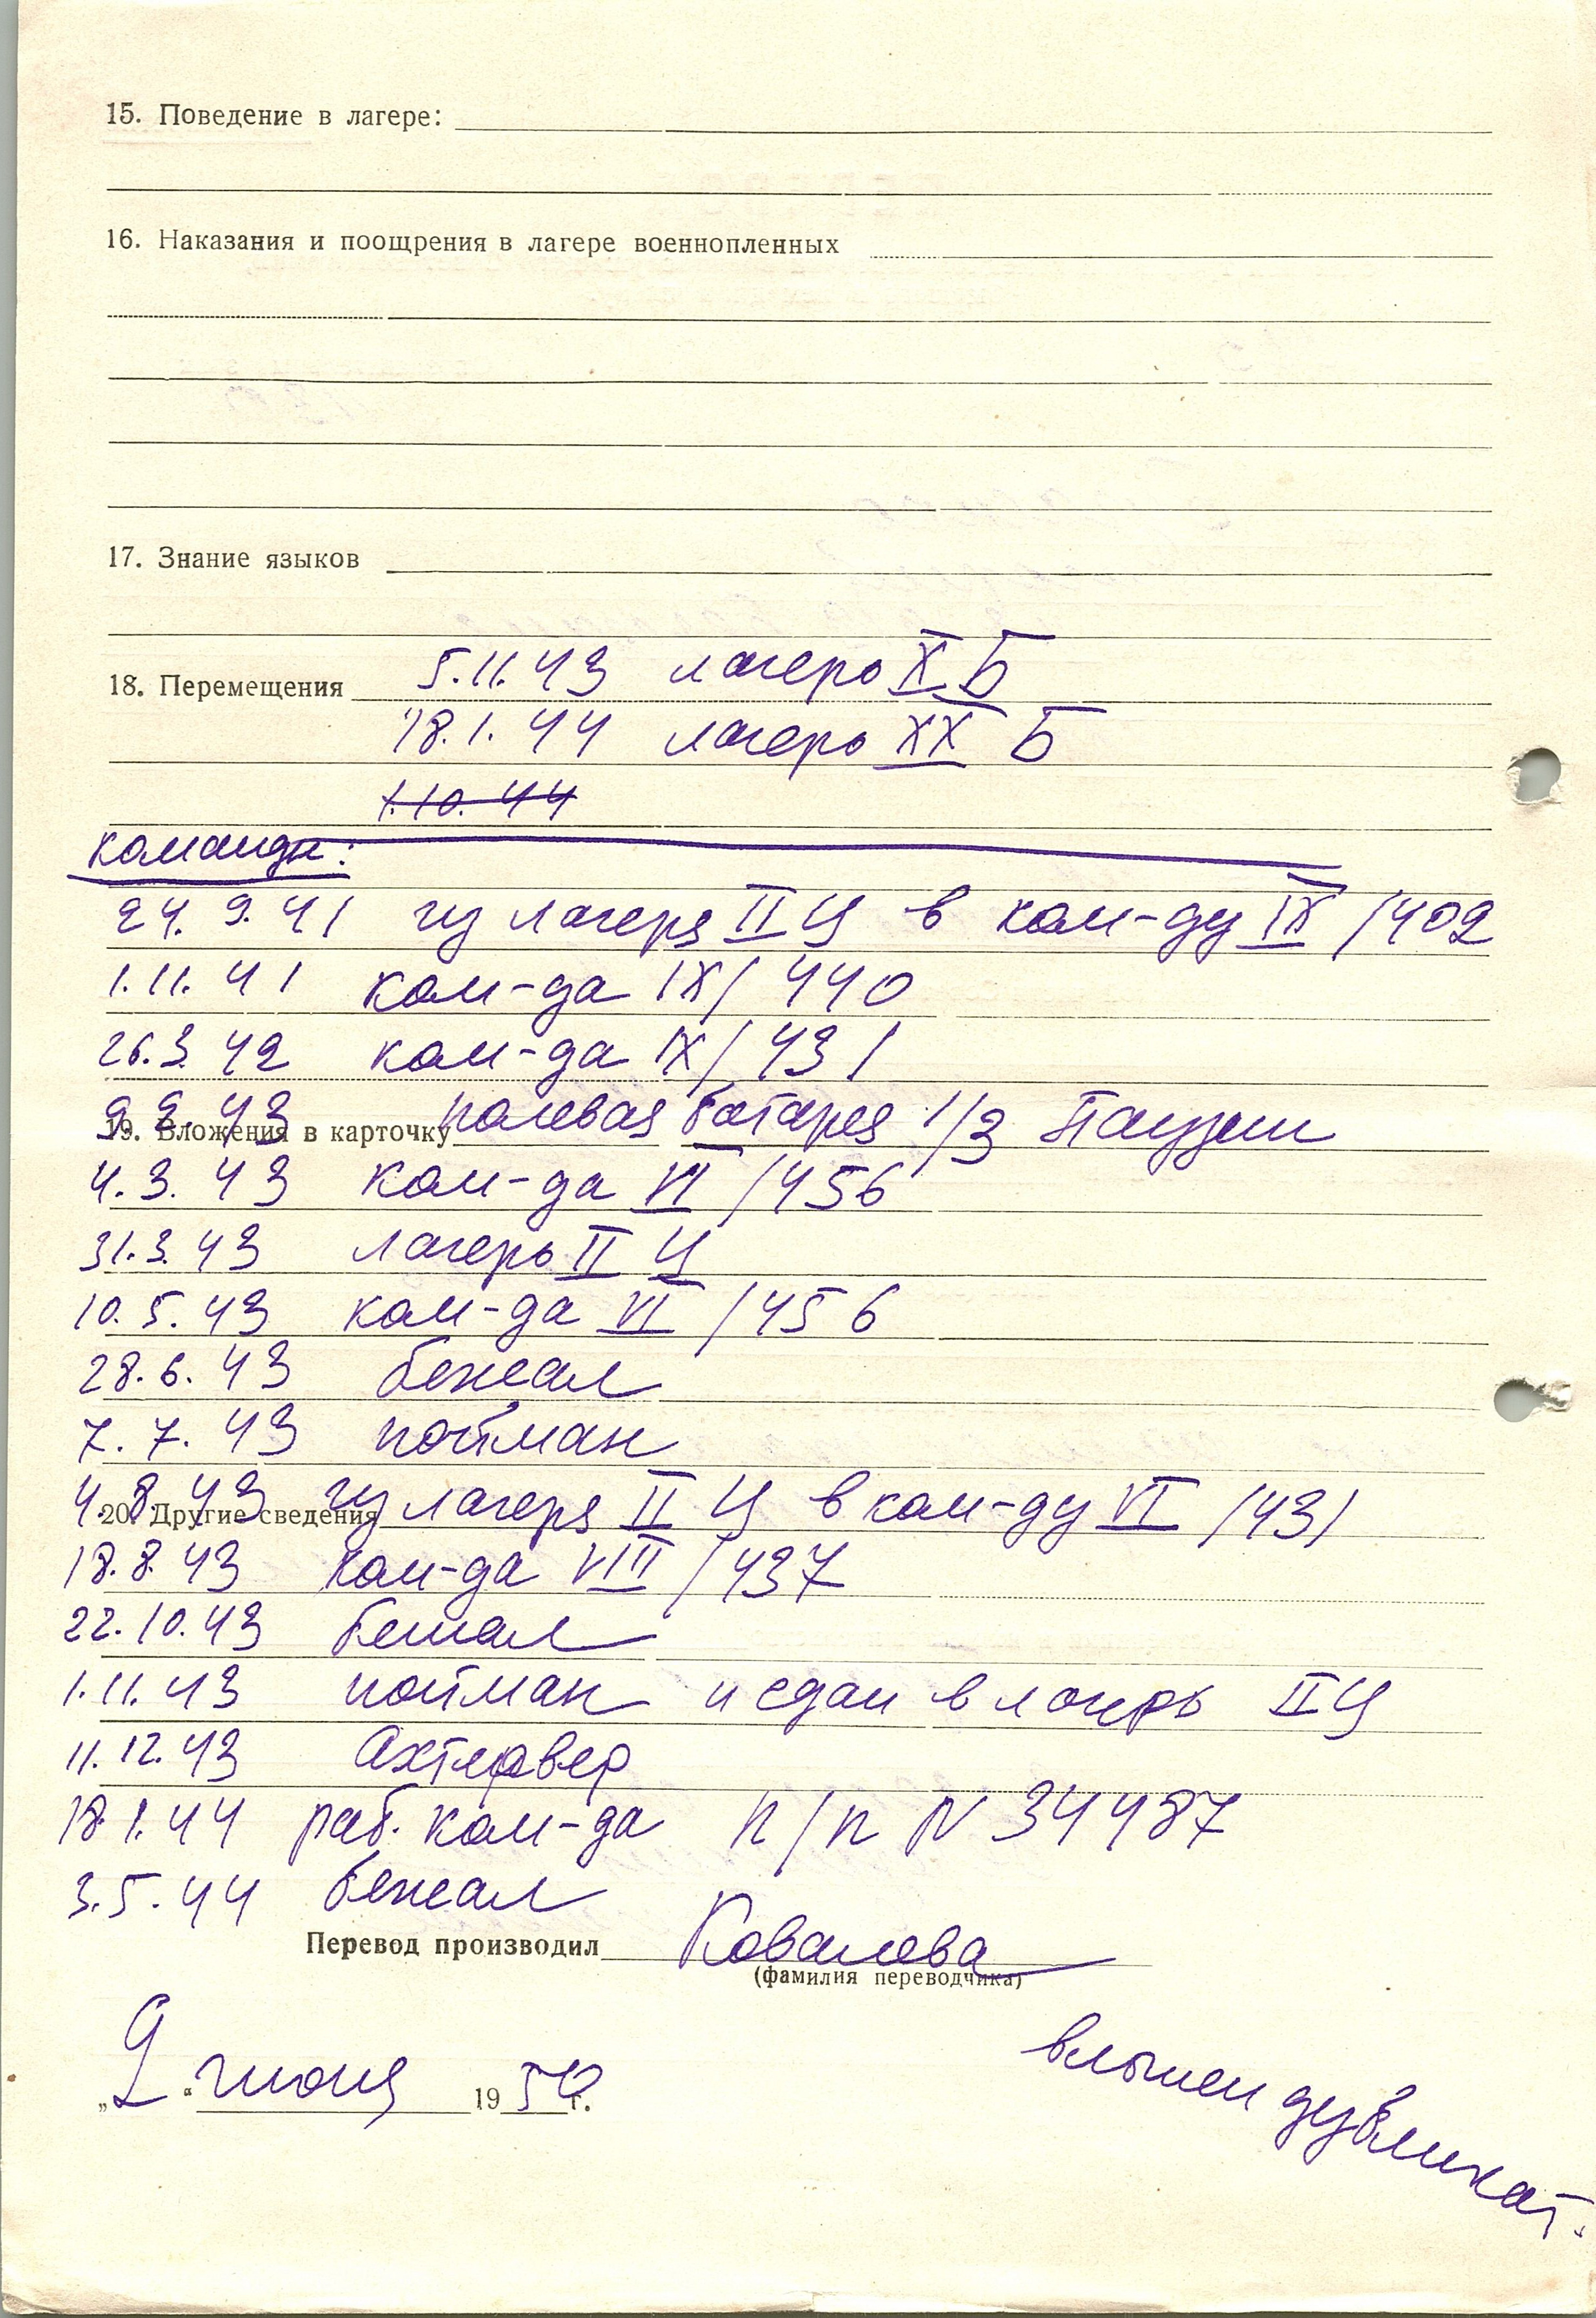 15. Поведение в лагере:
16. Наказания и поощрения в лагере военнопленных
17. Знание языков
18. Перемещения 5.11.43 лагерь X Б
18.1.44 лагерь XX Б
1.10.44
команды:
24.9.41 из лагеря II Ц в ком-ду IX/402
1.11.41 ком-да IX/440
26.3.42 ком-да IX/431
9.2.43 полевая батарея 1/3
19. Вложения в карточку
4.3.43 ком-да VI/456
31.3.43 лагерь II Ц
10.5.43 ком-да VI/456
28.6.43 бежал
7.7.43 пойман
4.8.43 из лагеря II Ц в ком-ду VI/431
20. Другие сведения
18.8.43 ком-да VIII/437
22.10.43 бежал
1.11.43 пойман и сдан в лагерь II Ц
11.12.43 Ахтервер
18.1.44 раб. ком-да п/п N 34487
3.5.44 бежал
Перевод производил Ковалева
(фамилия переводчика)
„2“ июня 1950 г.
вложен дубликат.